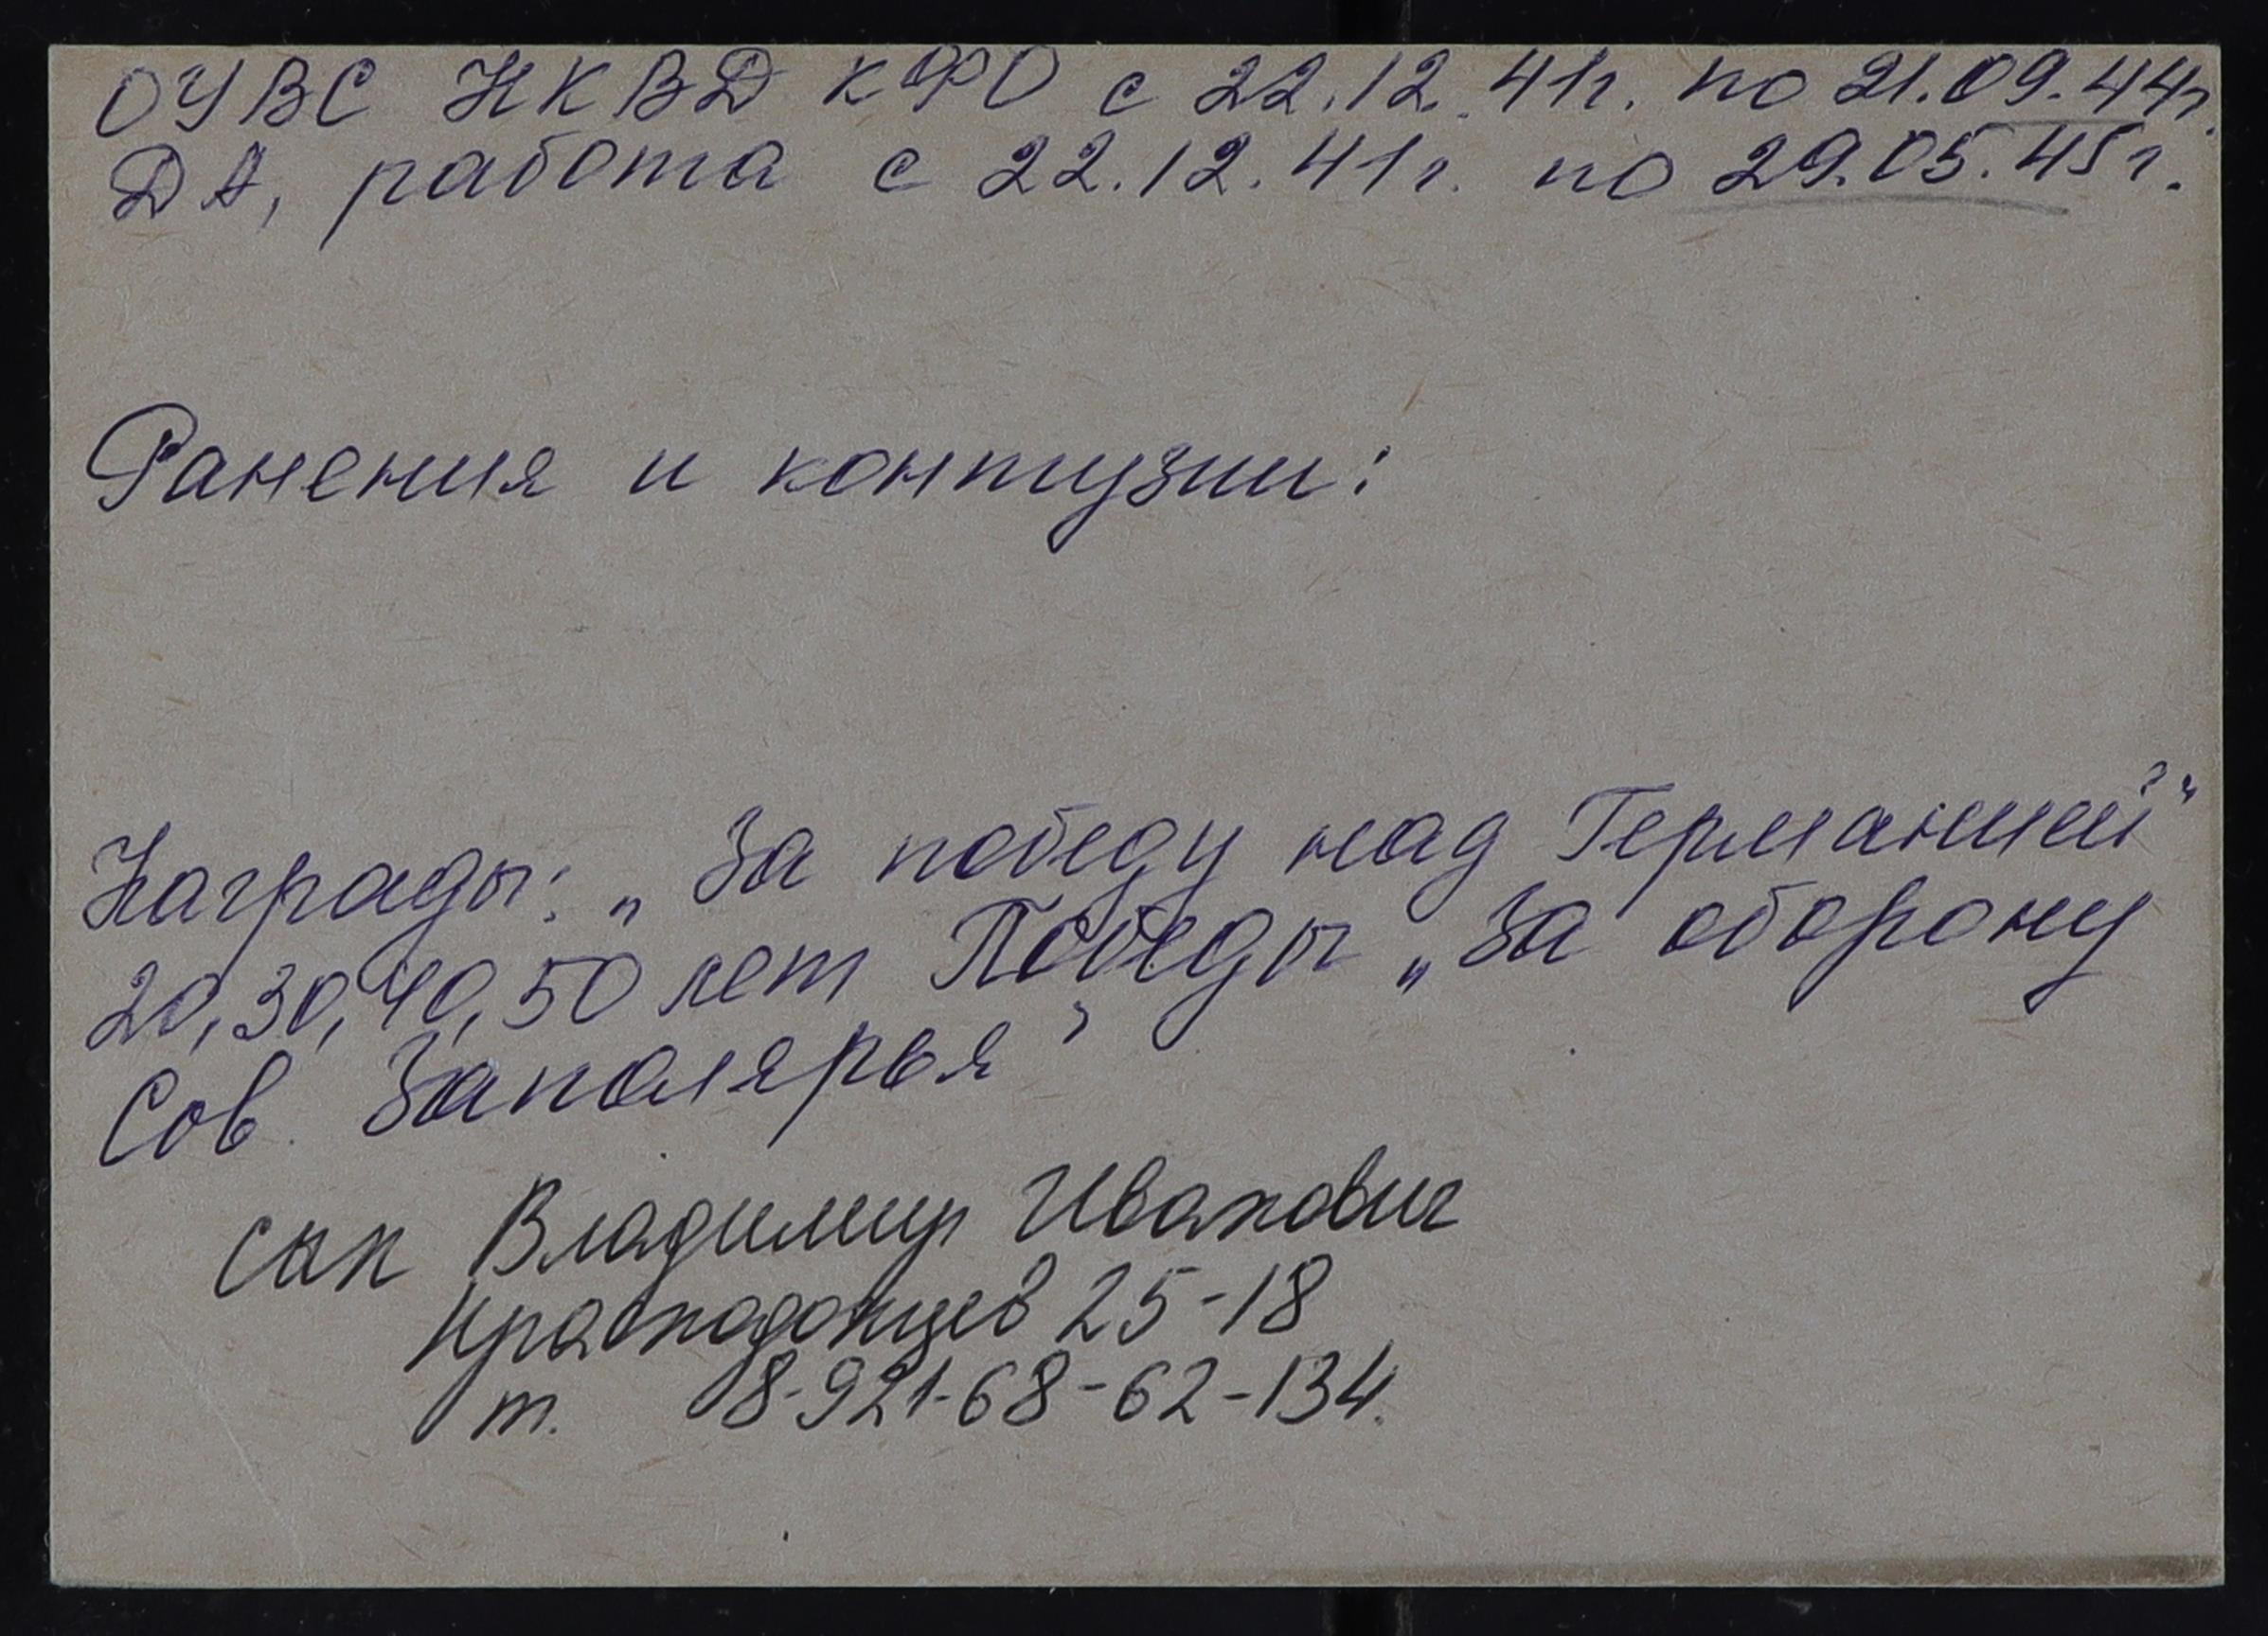 ОУВС НКВД КФО с 22.12.41г. по 21.09.44г.
ДА, работа с 22.12.41г. по 29.05.45г.
Ранения и контузии:
Награды: „За победу над Германией“
20,30,40,50 лет Победы „За оборону
Сов. Заполярья”
сын Владимир Иванович
Краснодонцев 25-18
т. 8-921-68-62-134.